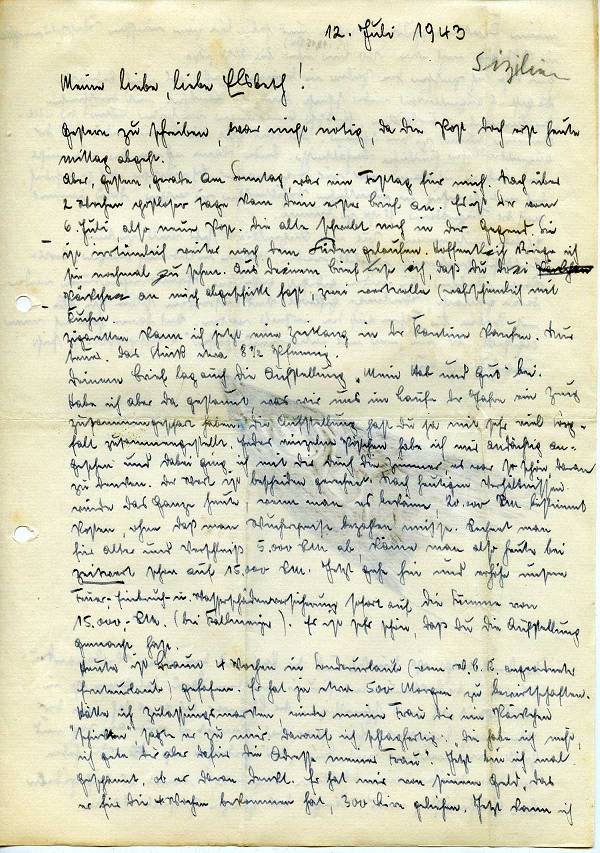 12. Juli 1943
Sizilien
Meine liebe, liebe Elsbeth!
Gestern zu schreiben, war nicht nötig, da die Post doch erst heute
mittag abgeht.
Aber, gestern, gerade am Sonntag, war ein Festtag für mich. Nach über
2 Wochen postloser Tage kam Dein erster Brief an. Er ist der vom
6. Juli also neue Post. Die alte schwebt noch in der Gegend. Sie
ist vermutlich weiter nach dem Süden gelaufen. Hoffentlich kriege ich
sie nochmal zu sehen. Aus Deinem Brief lese ich, daß Du drei
Päckchen an mich abgeschickt hast, zwei wertvolle (wahrscheinlich mit
Kuchen
Zigaretten kann ich jetzt eine Zeitlang in der Kantine kaufen. Nur
teuer. Das Stück etwa 8½ Pfennig.
Deinem Brief lag auch die Aufstellung „Mein Hab und Gut" bei.
Habe ich aber da gestaunt, was wir uns im Laufe der Jahre ein Zeug
zusammengespart haben. Die Aufstellung hast Du ja mit sehr viel Sorg-
falt zusammengestellt. Jedes einzelne Pöstchen habe ich mir andächtig an-
gesehen und dabei ging ich mit Dir durch die Zimmer. Es war so schön, daran
zu denken. Der Wert ist bescheiden gerechnet. Nach heutigen Verhältnissen
würde das Ganze heute, wenn man es bekäme, 20.000 RM bestimmt
kosten, ohne daß man Wucherpreise bezahlen müsse. Rechnet man
für Alter und Verschleiß 5.000 RM ab, käme man also heute bei
Zeitwert schon auf 15.000 RM. Jetzt gehe hin und erhöhe unsere
Feuer-Einbruch- u. Wasserschädenversicherung sofort auf die Summe von
15.000,- RM. (bei ). Es ist sehr schön, daß Du die Aufstellung
gemacht hast.
Heute ist Braun 4 Wochen in Sonderurlaub (vom angeordneter
Ernteurlaub) gefahren. Er hat zu Haus 500 Morgen zu bewirtschaften.
Hätte ich Zulassungsmarken, würde meine Frau Dir ein Päckchen
"schicken" sagte er zu mir. Darauf ich schlagfertig: „Die habe ich nicht,
ich gebe Dir aber dafür die Adresse meiner Frau". Jetzt bin ich mal
gespannt, ob er daran denkt. Er hat mir von seinem Geld, das
er für die 4 Wochen bekommen hat, 300 Lire geliehen. Jetzt kann ich